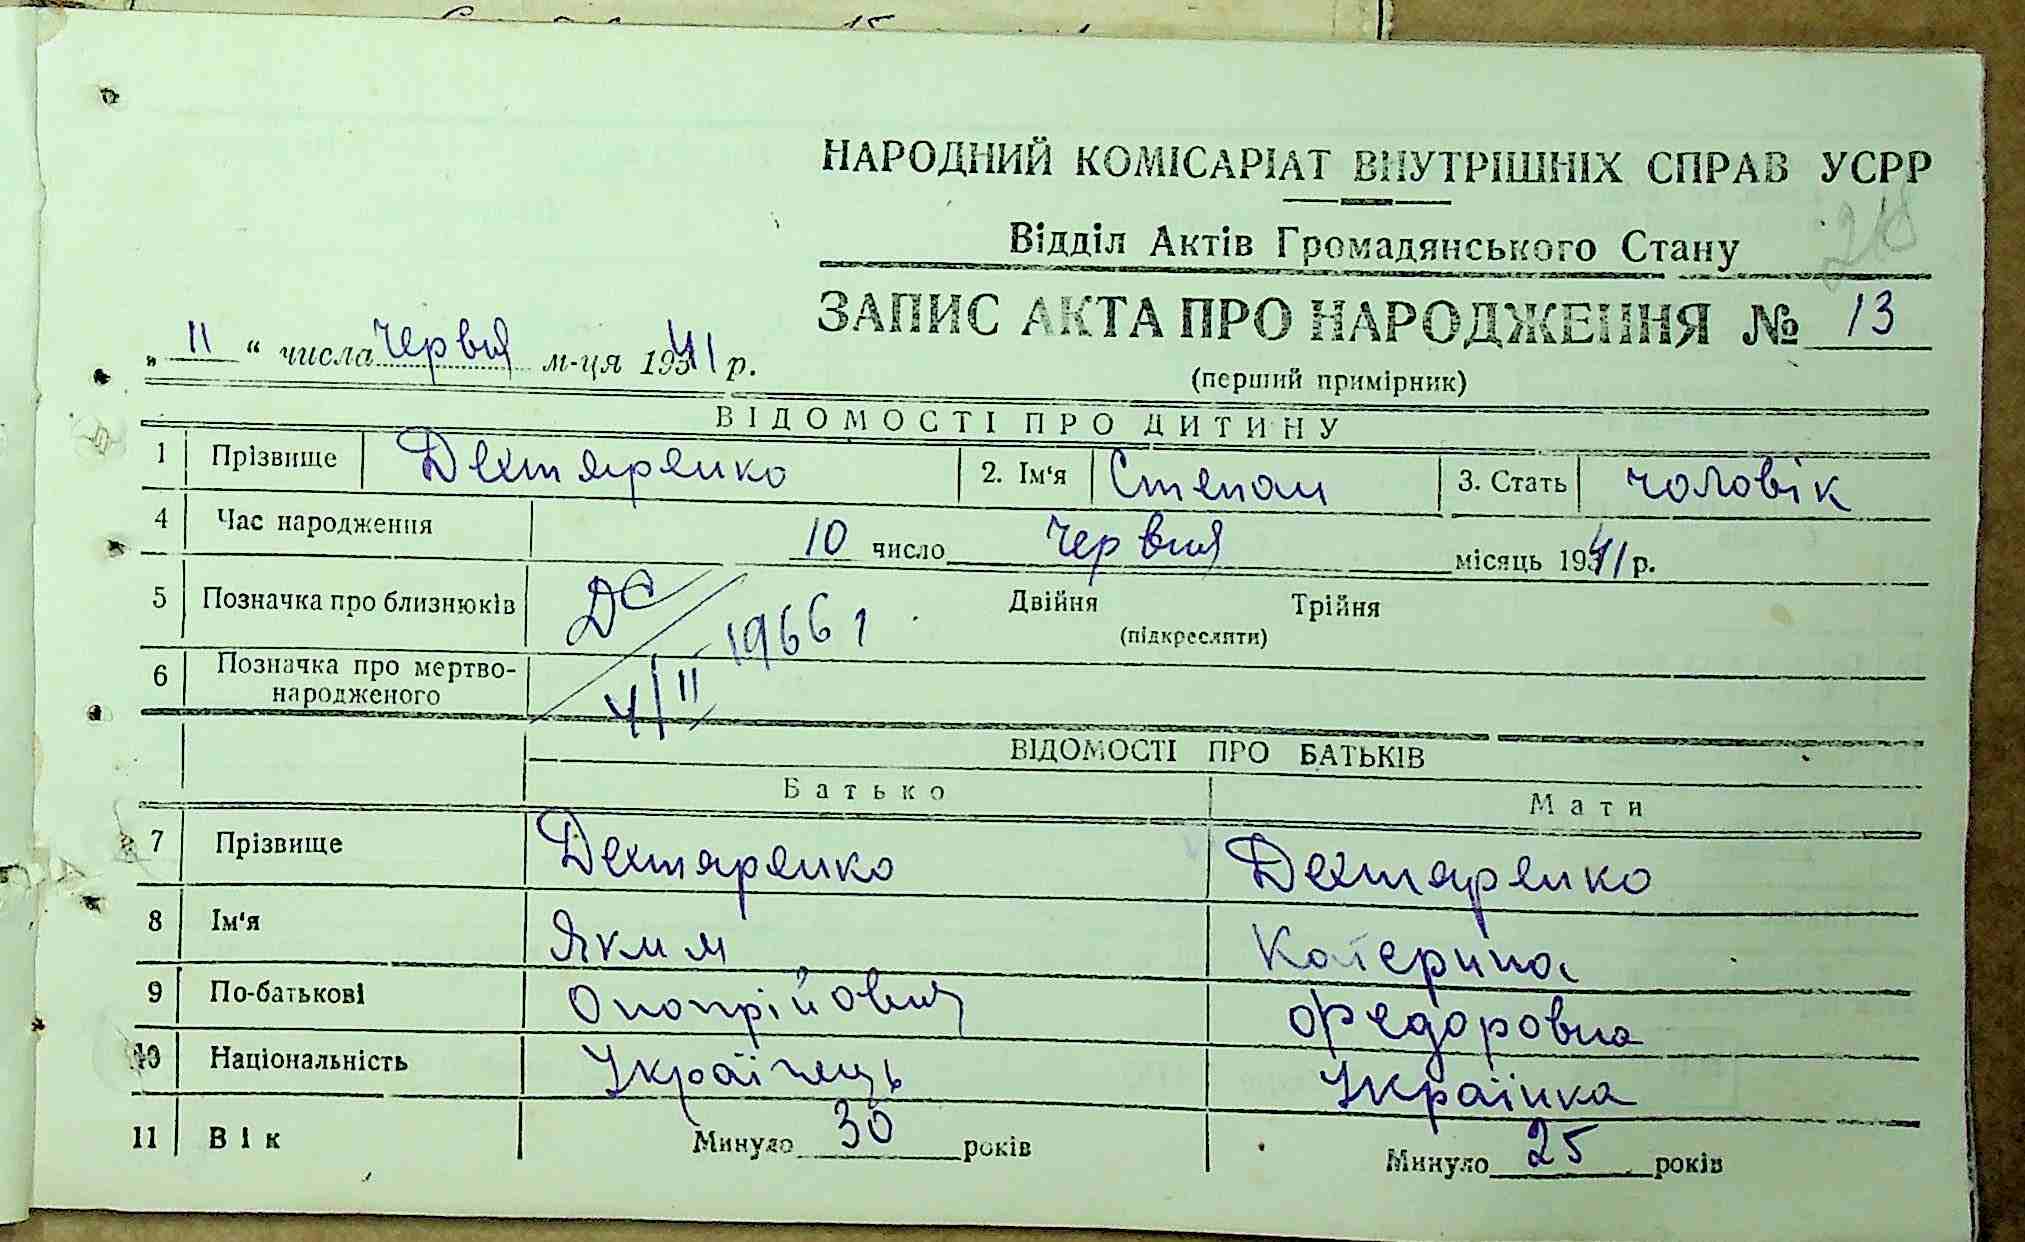 НАРОДНИЙ КОМІСАРІАТ ВНУТРІШНІХ СПРАВ УСРР
28
Відділ Актів Громадянського Стану
ЗАПИС АКТА ПРО НАРОДЖЕННЯ № 13
„ 11 “ числа червня м-ця 1941 р.
(перший примірник)
ВІДОМОСТІ ПРО ДИТИНУ
1 Прізвище Дехтяренко 2. Ім'я Степан 3. Стать чоловік
4 Час народження 10 число червня місяць 1941 р.
5 Позначка про близнюків Двійня Трійня
(підкреслити)
4/II 1966 г
6 Позначка про мертво-
народженого
ВІДОМОСТІ ПРО БАТЬКІВ
Батько Мати
7 Прізвище Дехтяренко Дехтяренко
8 Ім'я Яким Катерина
9 По-батькові Онопрійович Федоровна
10 Національність Українець Українка
11 Вік Минуло 30 років Минуло 25 років